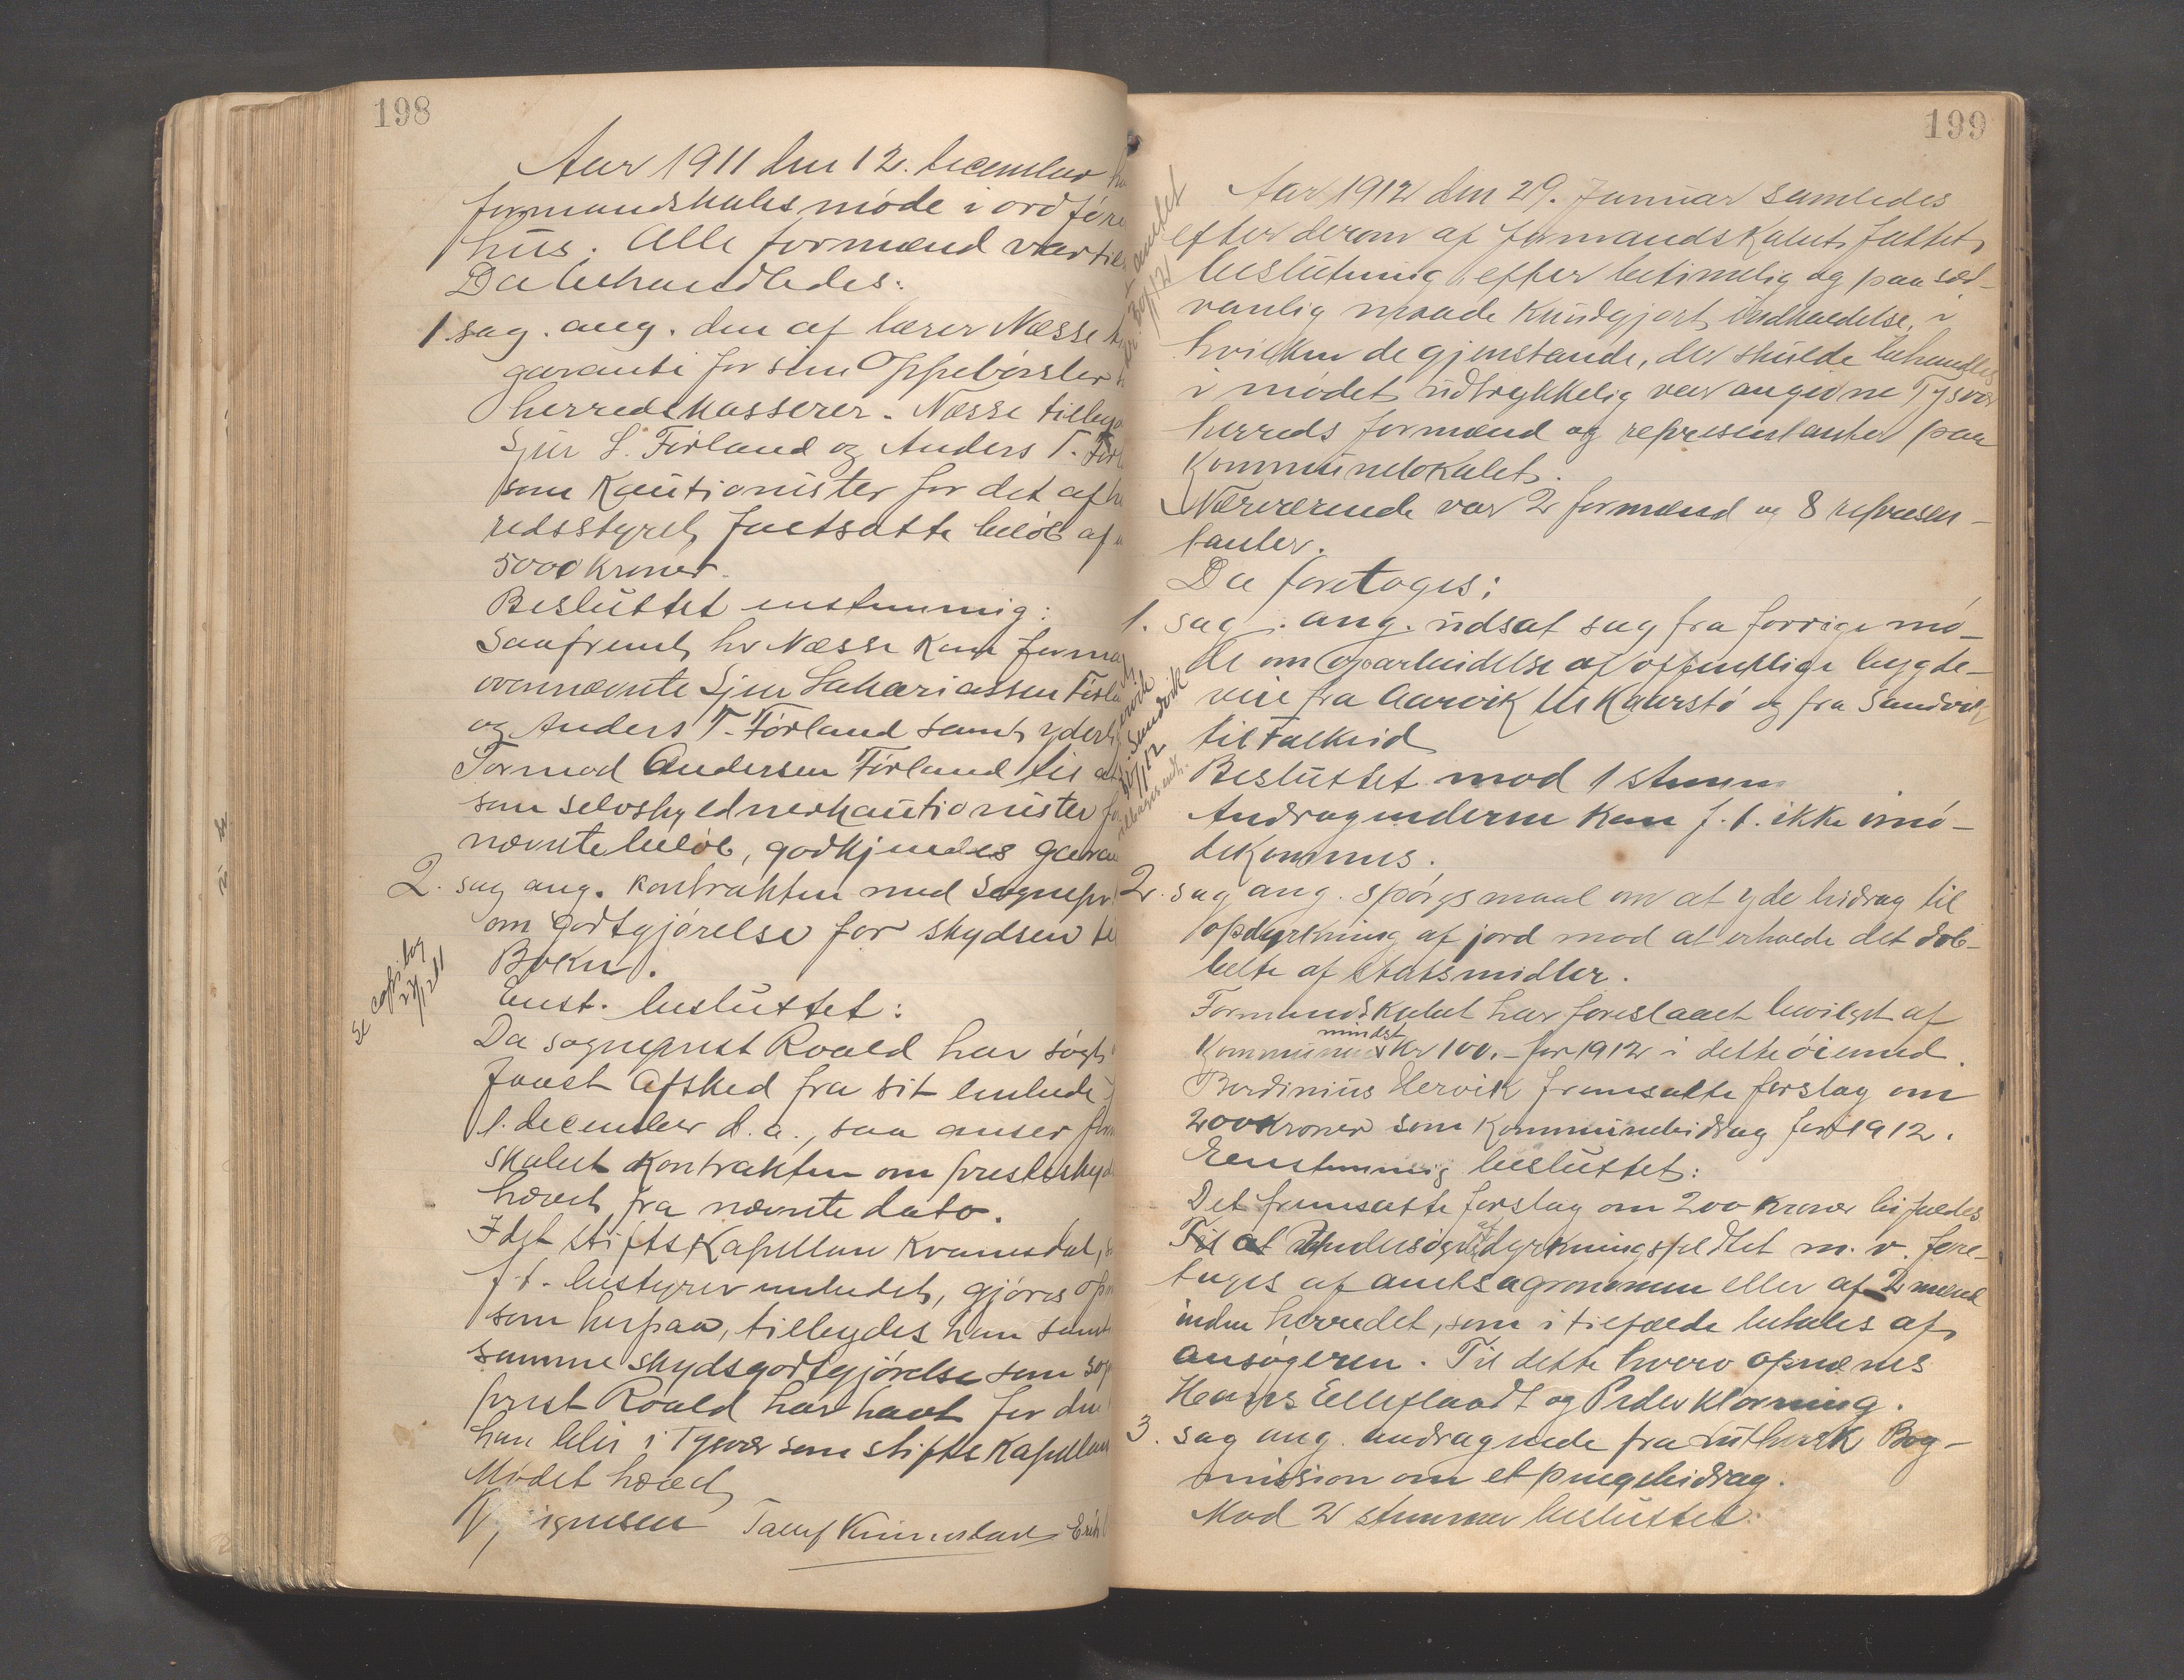 198
Aar 1911 den 12. december
formandskabsmøde i ordføre
hus. Alle formænd var til
Da behandledes:
1. sag. ang. den af lærer Næsse
garanti for sine Oppebørsler
herredskasserer. Næsse tilbyd
Sjur S. Førland og Anders T. Førl
som Kautionister for det af he
redsstyret fastsatte beløb af
5000 kroner.
Besluttet enstemmig:
Saafremt hr Næsse kan forma
ovennævnte Sjur Sakariassen Førla
og Anders T. Førland samt yderl
Tormod Andersen Førland til at
som selvskyldnerkautionister for
nævnte beløb, godkjendes garan
2. sag ang. kontrakten med Sognepr
om godtgjørelse for skydsen til
Bokn.
Se copibog
27/12 11
Enst. besluttet:
Da sogneprest Roald har søgt
faaet Afsked fra sit embede
1. december d. a., saa anser for
skabet kontrakten om presteskyd
hævet fra nævnte dato.
Idet stiftskapellan Kvamsdal, s
f. t. bestyrer embedet, gjøres op
som herpaa, tilbydes ham samt
samme skydsgodtgjørelse som sog
prest Roald har havt for den
han blir i Tysvær som stiftskapellan
Mødet hævet
Kinnestad Erik
199
Aar 1912 den 29. Januar samledes
efter derom af formandskabet fattet
beslutning efter betimelig og paa sæd-
vanlig maade kundgjort indkaldelse, i
hvilken de gjenstande, der skulde behandles
i mødet udtrykkelig var angivne Tysvær
herreds formænd og representanter paa
Kommunelokalet.
Nærværende var 2 formænd og 8 represen-
tanter.
Da foretoges:
1. sag. ang. udsat sag fra forrige mø-
de om oparbeidelse af offentlige bygde-
veie fra Aarvik til Kaarstø og fra Sandvik
til Falkeid
Sandvik
30/1 12
Besluttet mod 1 stemme
Andragenderne kan f. t. ikke imø-
dekommes.
2. sag ang. spørgsmaal om at yde bidrag til
opdyrkning af jord mod at erholde det dob-
belte af statsmidler.
Formandskabet har foreslaaet bevilget af
mindst
Kommunen kr 100.- for 1912 i dette øiemed.
Berdinius Hervik fremsatte forslag om
200 kroner som kommunebidrag for 1912.
Eenstemmig besluttet:
Det fremsatte forslag om 200 kroner bifaldes
Til at Undersøgelse af dyrkningsfeltet m. v. fore-
tages af amtsagronomen eller af 2 mænd
inden herredet, som i tilfælde betales af
ansøgeren. Til dette hverv opnævnes
Hans Ellefladt og Peder Klovning.
3. sag ang. andragende fra Luthersk Bog-
mission om et pengebidrag.
Mod 2 stemmer besluttet: